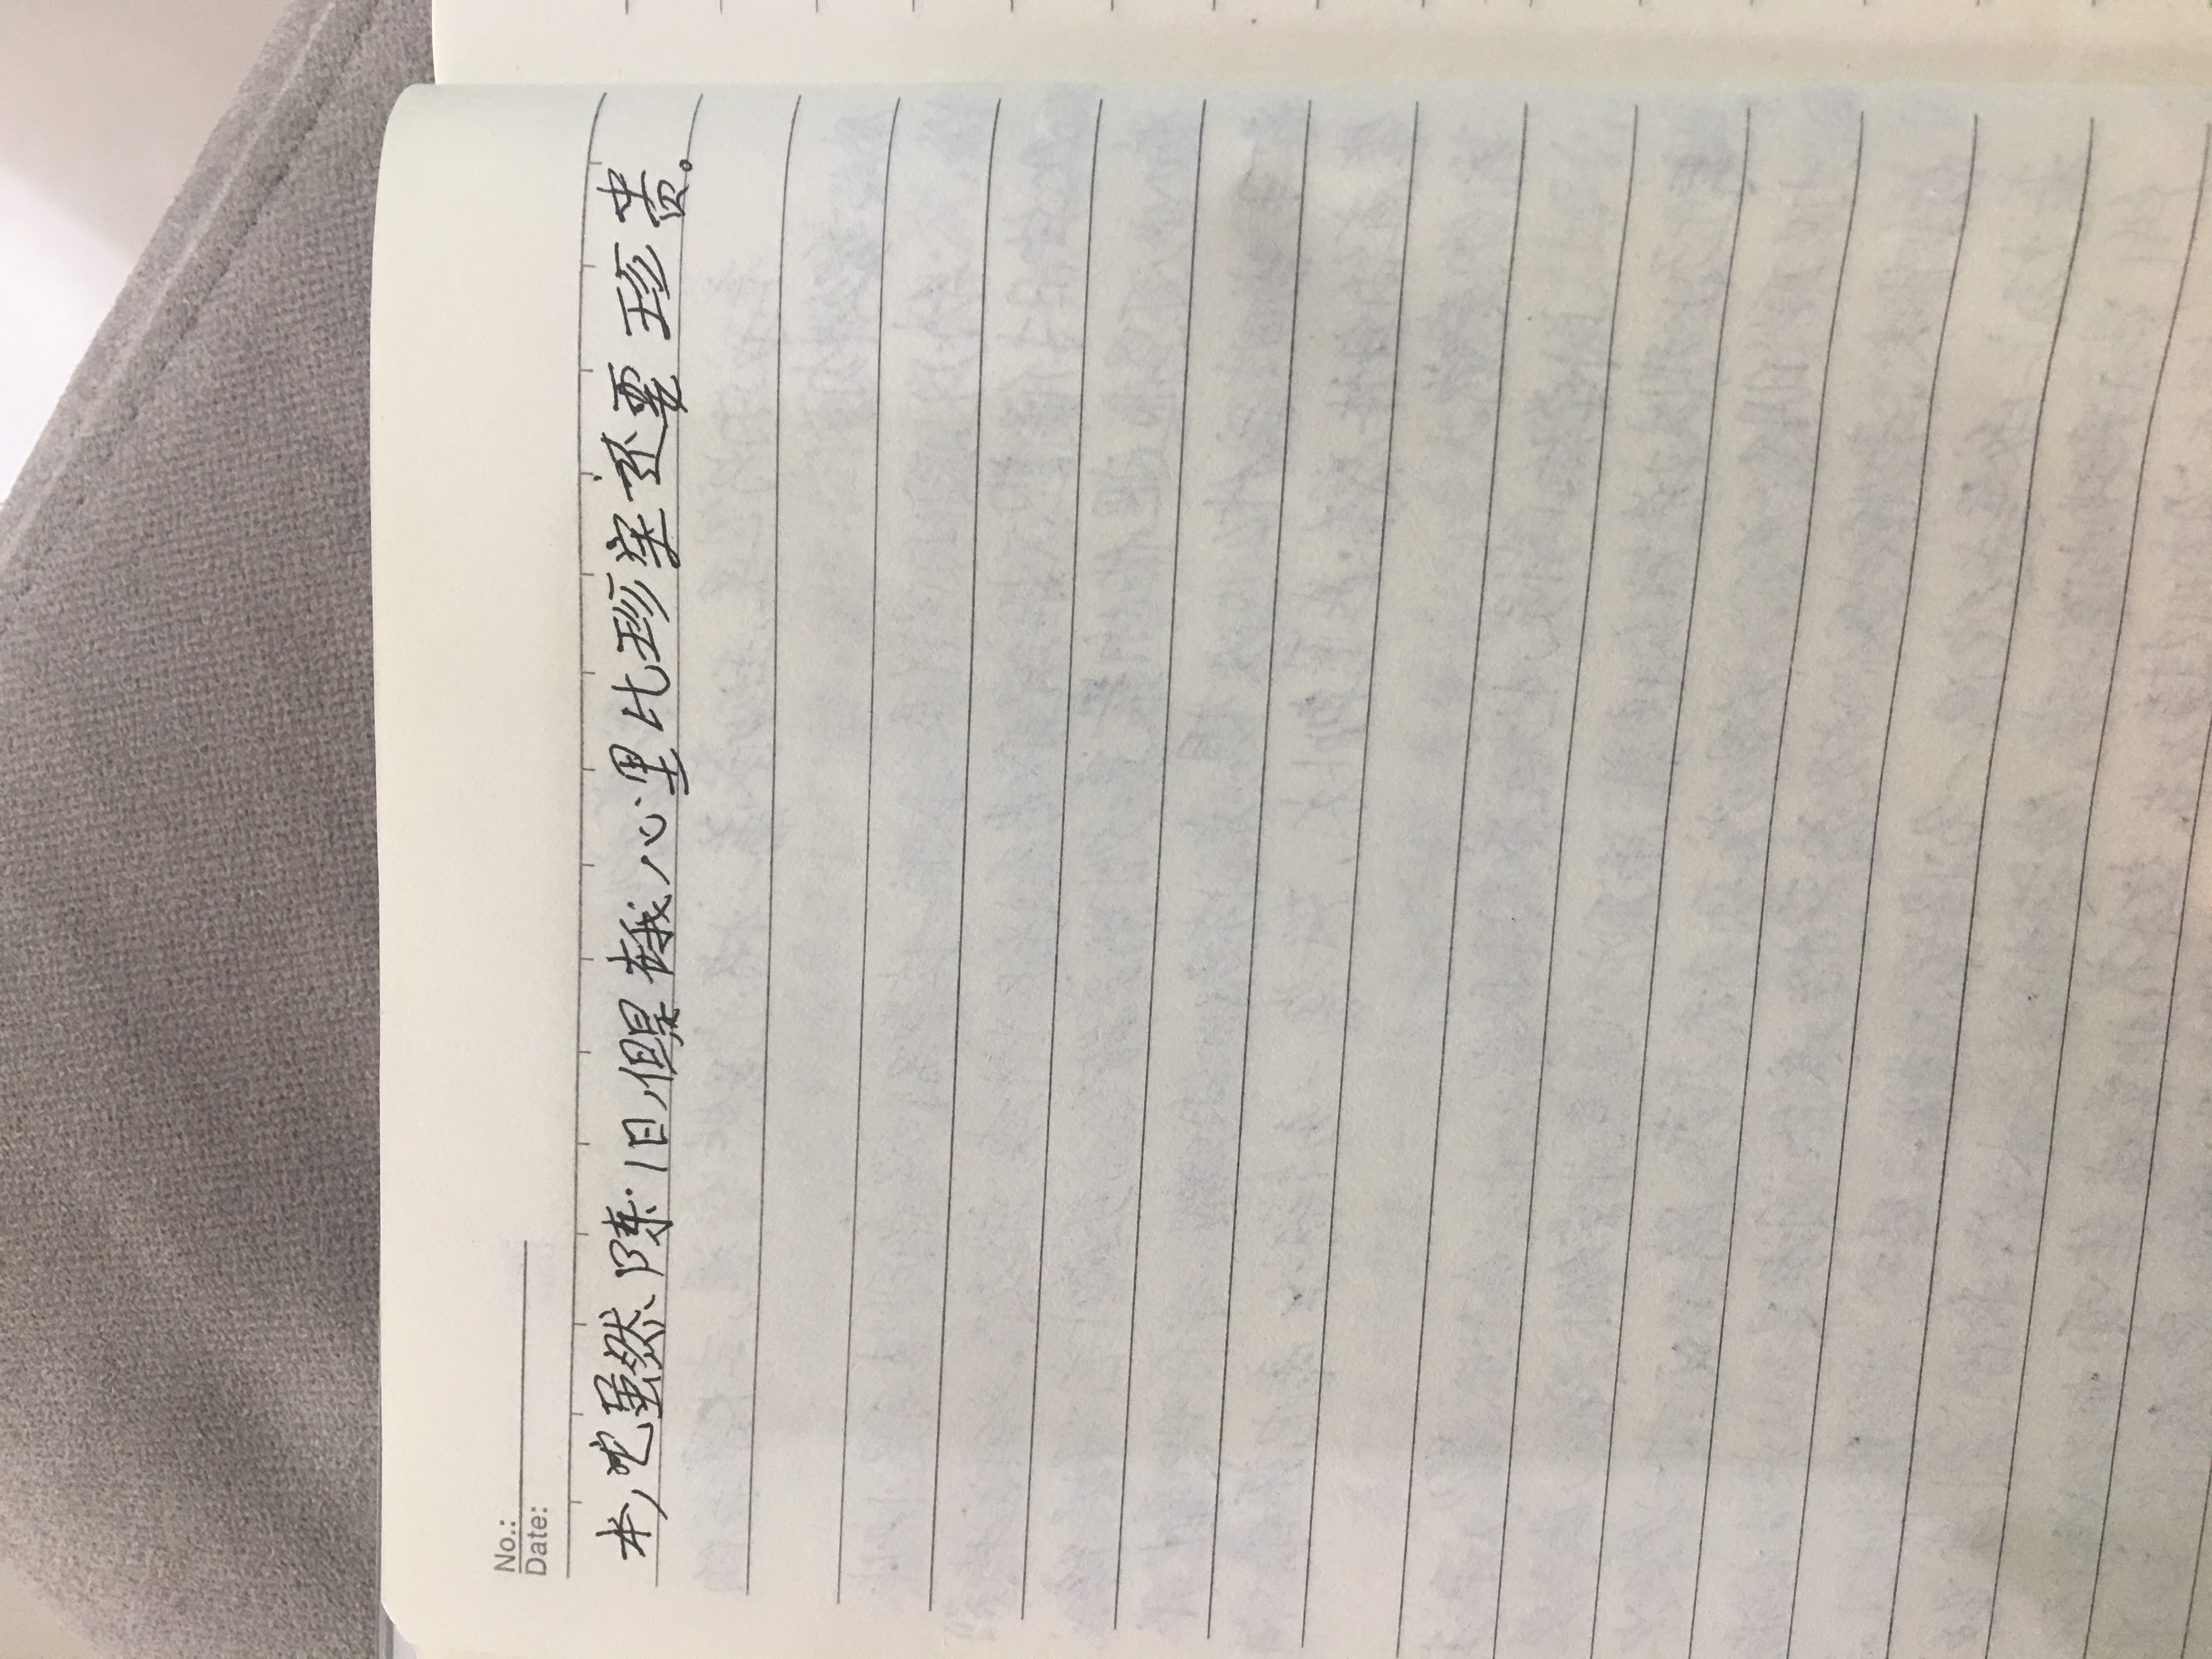 No.:
Date:
本，它虽然陈旧，但是在我心里比珍宝还要珍贵。